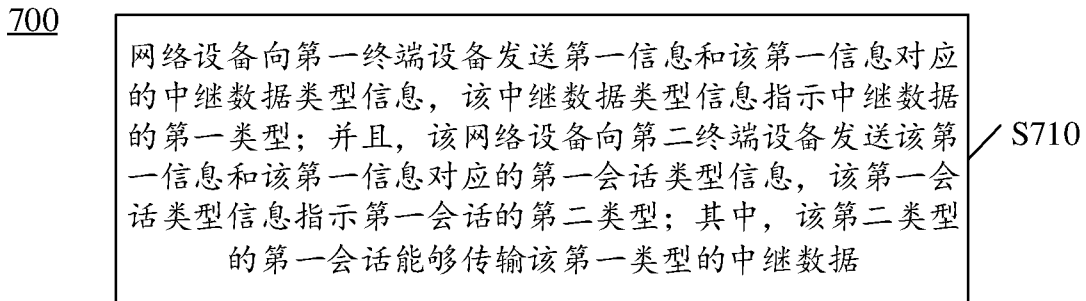 700
网络设备向第一终端设备发送第一信息和该第一信息对应
的中继数据类型信息，该中继数据类型信息指示中继数据
的第一类型；并且，该网络设备向第二终端设备发送该第
一信息和该第一信息对应的第一会话类型信息，该第一会
话类型信息指示第一会话的第二类型；其中，该第二类型
的第一会话能够传输该第一类型的中继数据
S710